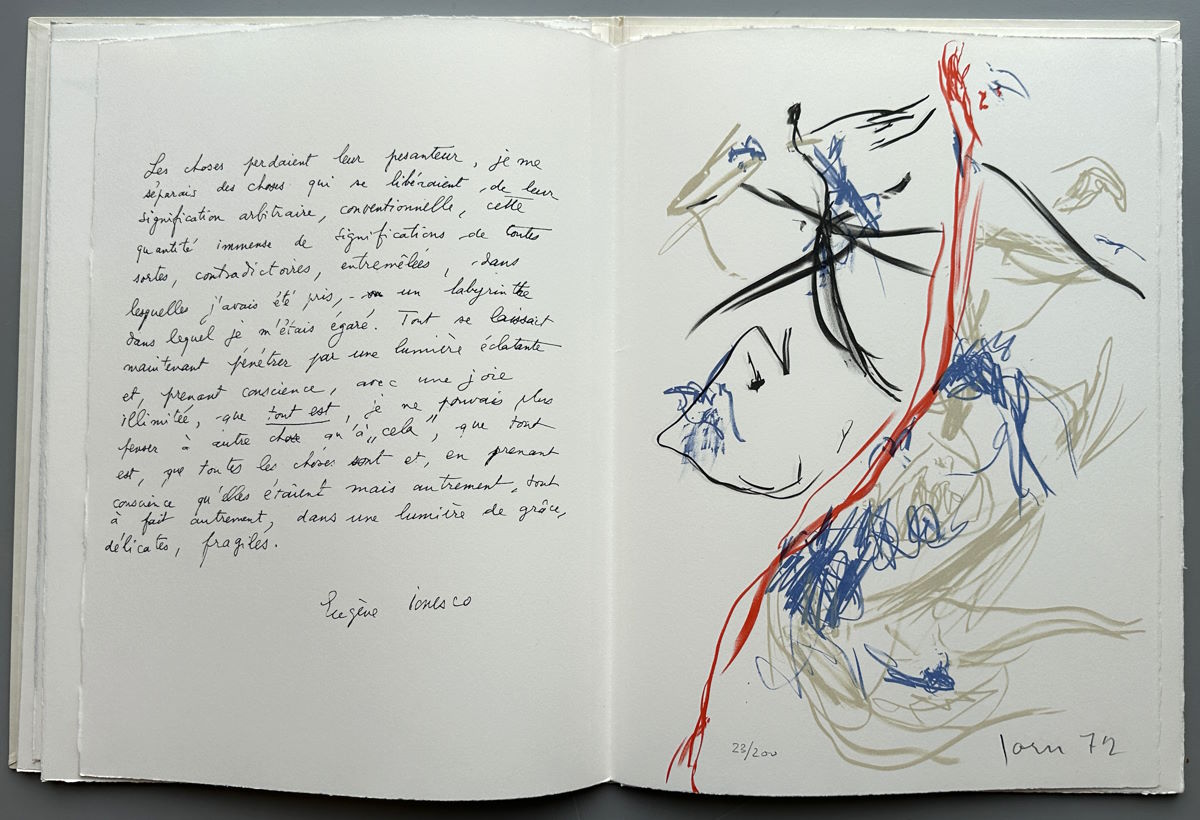 Les choses perdaient leur pesanteur, je me
séparais des choses qui se libéraient de leur
signification arbitraire, conventionnelle, cette
quantité immense de significations de toutes
sortes, contradictoires, entremêlées, dans
lesquelles j'avais été pris, un labyrinthe
dans lequel je m'étais égaré. Tout se laissait
maintenant pénétrer par une lumière éclatante
et, prenant conscience, avec une joie
illimitée, que tout est, je ne pouvais plus
penser à autre chose qu'à "cela", que tout
est, que toutes les choses sont et, en prenant
conscience qu'elles étaient mais autrement, tout
à fait autrement, dans une lumière de grâce,
délicates, fragiles.
Eugène Ionesco
23/200
Jorn 72